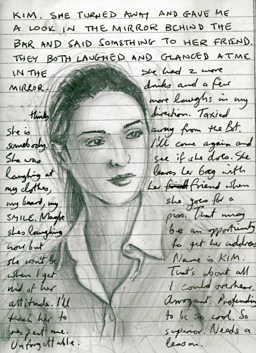 KIM. SHE TURNED AWAY AND GAVE ME
A LOOK IN THE MIRROR BEHIND THE
BAR AND SAID SOMETHING TO HER FRIEND.
THEY BOTH LAUGHED AND GLANCED AT ME
IN THE
MIRROR.
She had 2 more
drinks and a few
more laughs in my
direction. Taxied
away from the Bt.
I'll come again and
see if she does. She
leaves her bag with
her friend when
she goes for a
piss. That may
be an opportunity
to get her address
Name is KIM.
That's about all
I could overhear.
Arrogant. Pretending
to be so cool. So
superior. Needs a
lesson.
thinks
She is
somebody.
She was
laughing at
my clothes,
my beard, my
SMILE. Maybe
shes laughing
now but
she won't be
when I get
rid of her
attitude. I'll
teach her to
reject me.
Unforgettable.